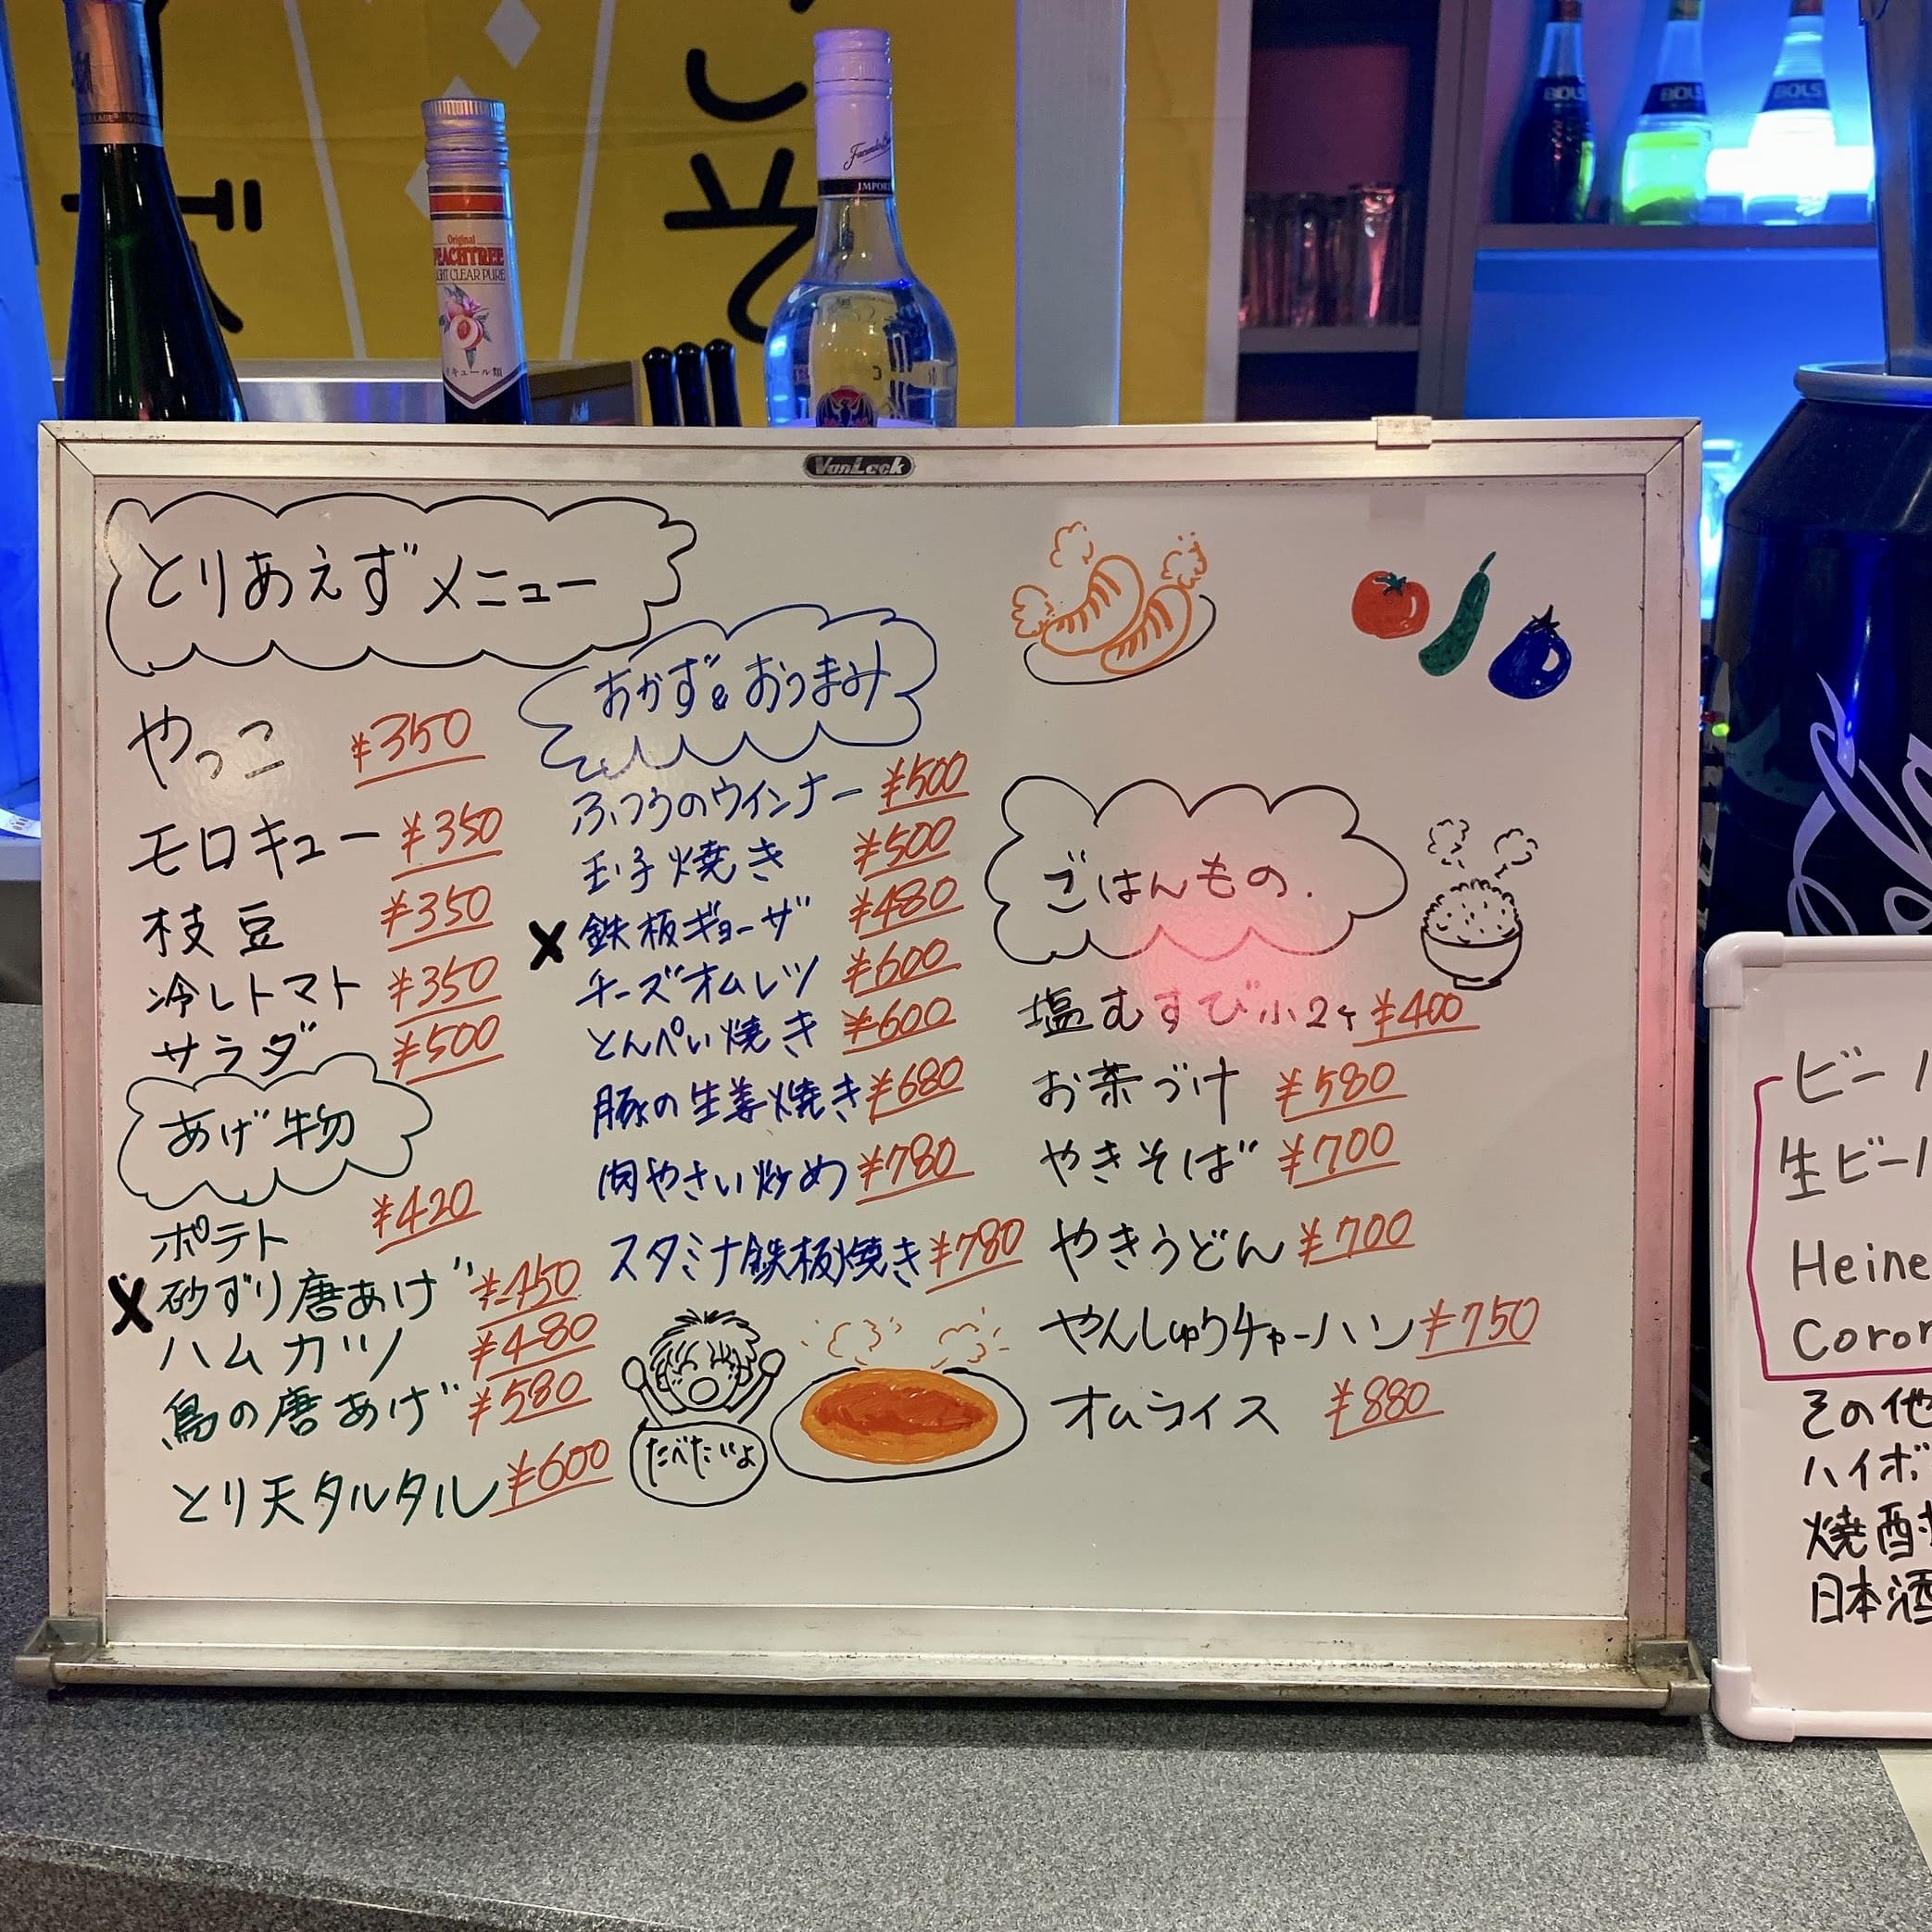 Original
PEACHTREE
LIGHT CLEAR PURE
キュール類
IMPOR
BOLS
BOLS
BOLS
VanLack
とりあえずメニュー
やっこ ¥350
モロキュー ¥350
枝豆 ¥350
冷しトマト ¥350
サラダ ¥500
あげ物
ポテト ¥420
X 砂ずり唐あげ ¥450
ハムカツ ¥480
鳥の唐あげ ¥580
とり天タルタル ¥600
おかず&おつまみ
ふつうのウインナー ¥500
玉子焼き ¥500
X 鉄板ギョーザ ¥480
チーズオムレツ ¥600
とんぺい焼き ¥600
豚の生姜焼き ¥680
肉やさい炒め ¥780
スタミナ鉄板焼き ¥780
たべたいよ
ごはんもの.
塩むすび小2ヶ ¥400
お茶づけ ¥580
やきそば ¥700
やきうどん ¥700
やんしゅうチャーハン ¥750
オムライス ¥880
ビー
生ビー
Heine
Coron
その他
ハイボ
焼酎
日本酒